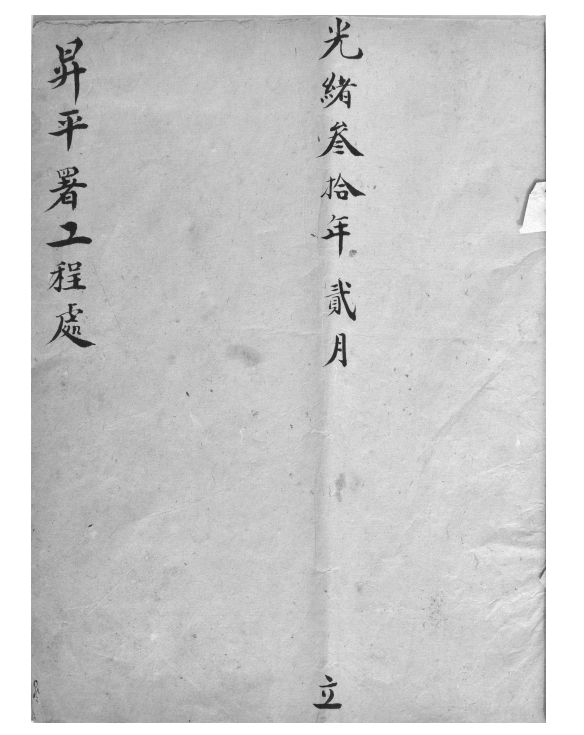 光緒叁拾年貳月 立
昇平署工程處